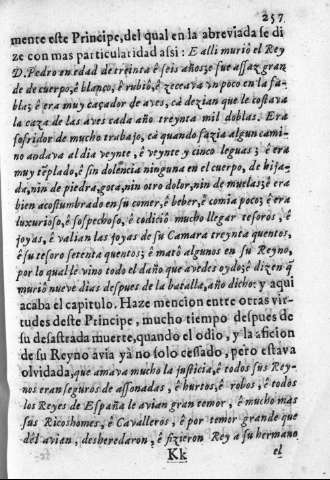 257
mente este Principe, del qual en la abreviada se di
ze con mas particularidad assi: E alli murió el Rey
D. Pedro en edad de treinta é seis años; e fue assaz gran
de de cuerpo, é blanco, é rubiô, é zeceava vn poco en la fa-
bla; é era muy caçador de aves, cà dezian que le costava
la caza de las aves cada año treynta mil doblas. Era
sofridor de mucho trabajo, cà quando fazia algun cami-
no andava al dia veynte, é veynte y cinco leguas; é era
muy tẽplado, é sin dolencia ninguna en el cuerpo, de hija-
da, nin de piedra, gota, nin otro dolor, nin de muelas; é era
bien acostumbrado en su comer, é beber, é comia poco; é era
luxurioso, é sospechoso, é codiciô mucho llegar tesoros, é
joyas, é valian las joyas de su Camara treynta quentos,
é su tesoro setenta quentos; é matô algunos en su Reyno,
por lo qual le vino todo el daño que avedes oydo; é dizen q̃
muriô nueve dias despues de la batalla, año dicho: y aqui
acaba el capitulo. Haze mencion entre otras vir-
tudes deste Principe, mucho tiempo despues de
su desastrada muerte, quando el odio, y la aficion
de su Reyno avia ya no solo cessado, pero estava
olvidada, que amava mucho la justicia, é todos sus Rey-
nos eran seguros de assonadas, é hurtos, é robos, é todos
los Reyes de España le avian gran temor, é mucho mas
sus Ricoshomes, é Cavalleros, é por temor grande que
dél avian, desheredaron, é fizieron Rey a su hermano
Kk el